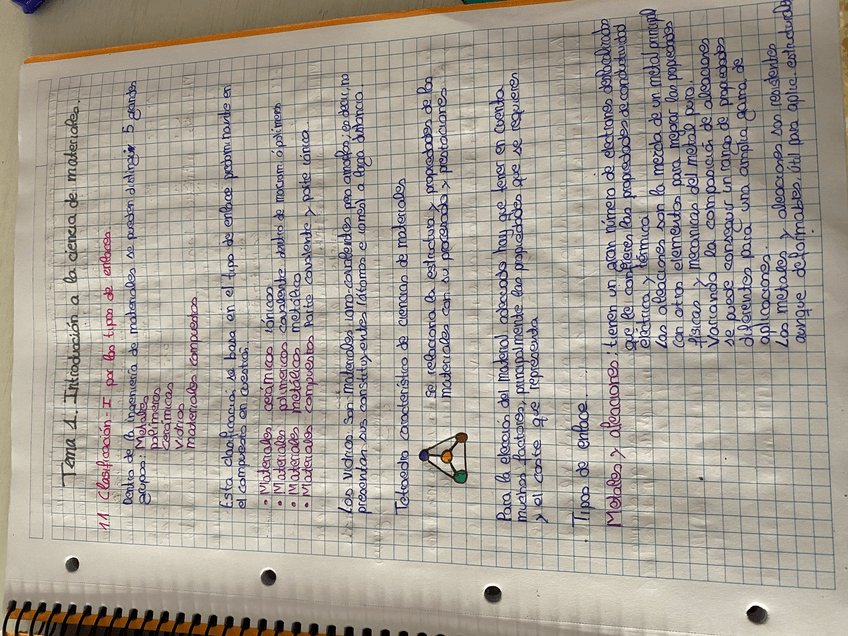 Tema 1. Introducción a la ciencia de materiales.
1.1 Clasificación-I por los tipos de enlaces.
Dentro de la ingeniería de materiales se pueden distinguir 5 grandes
grupos: Metales
polímeros
cerámicas
vidrios
materiales compuestos
Esta clasificación se basa en el tipo de enlace predominante en
el compuesto en cuestión
• Materiales cerámicos iónicos
• Materiales poliméricos covalente dentro de macrom. o polímeros
• Materiales metálicos metálico
• Materiales compuestos Parte covalente y parte iónica
Los vidrios son materiales iono-covalentes pero amorfos, es decir, no
presentan sus constituyentes (átomos e iones) a larga distancia.
Tetraedro característico de ciencias de materiales
Se relaciona la estructura y propiedades de los
materiales con su procesado y prestaciones
Para la elección del material adecuado hay que tener en cuenta
muchos factores, principalmente las propiedades que se requieren
y el coste que representa
Tipos de enlace.
Metales y aleaciones: tienen un gran número de electrones deslocalizados
que le confieren las propiedades de conductividad
eléctrica y térmica
Las aleaciones son la mezcla de un metal principal
con otros elementos para mejorar las propiedades
físicas y mecánicas del metal puro.
Variando la composición de aleaciones
se puede conseguir un rango de propiedades
diferentes para una amplia gama de
aplicaciones.
Los metales y aleaciones son resistentes
aunque deformables. Útil para aplic. estructurales